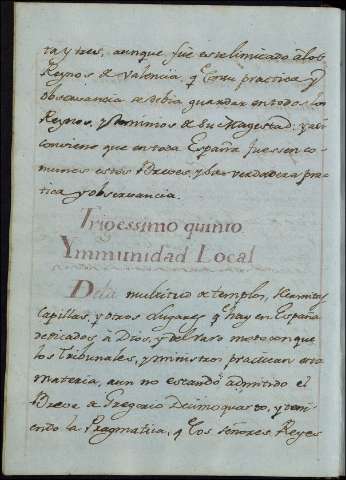 ta y tres, aunque fue es te limitado à los
Reynos de Valencia, q̃ Con su practica y
observancia debia guardar en todos los
Reynos, y Dominios de Su Magestad; y assi
conviene que en toda España fuessen co-
munes estos Breves, y su verdadera prac-
tica y observancia.
Trigessimo quinto
Ymmunidad Local
De la multitud de templos, Hermitas
Capillas, y otros Lugares q̃ hay en España
dedicados à Dios, y del raro modo con que
los Tribunales, y ministros practican esta
materia, aun no estando admitido el
Breve de Gregorio Decimoquarto, y
la Pragmatica, q̃ Los señores Reyes